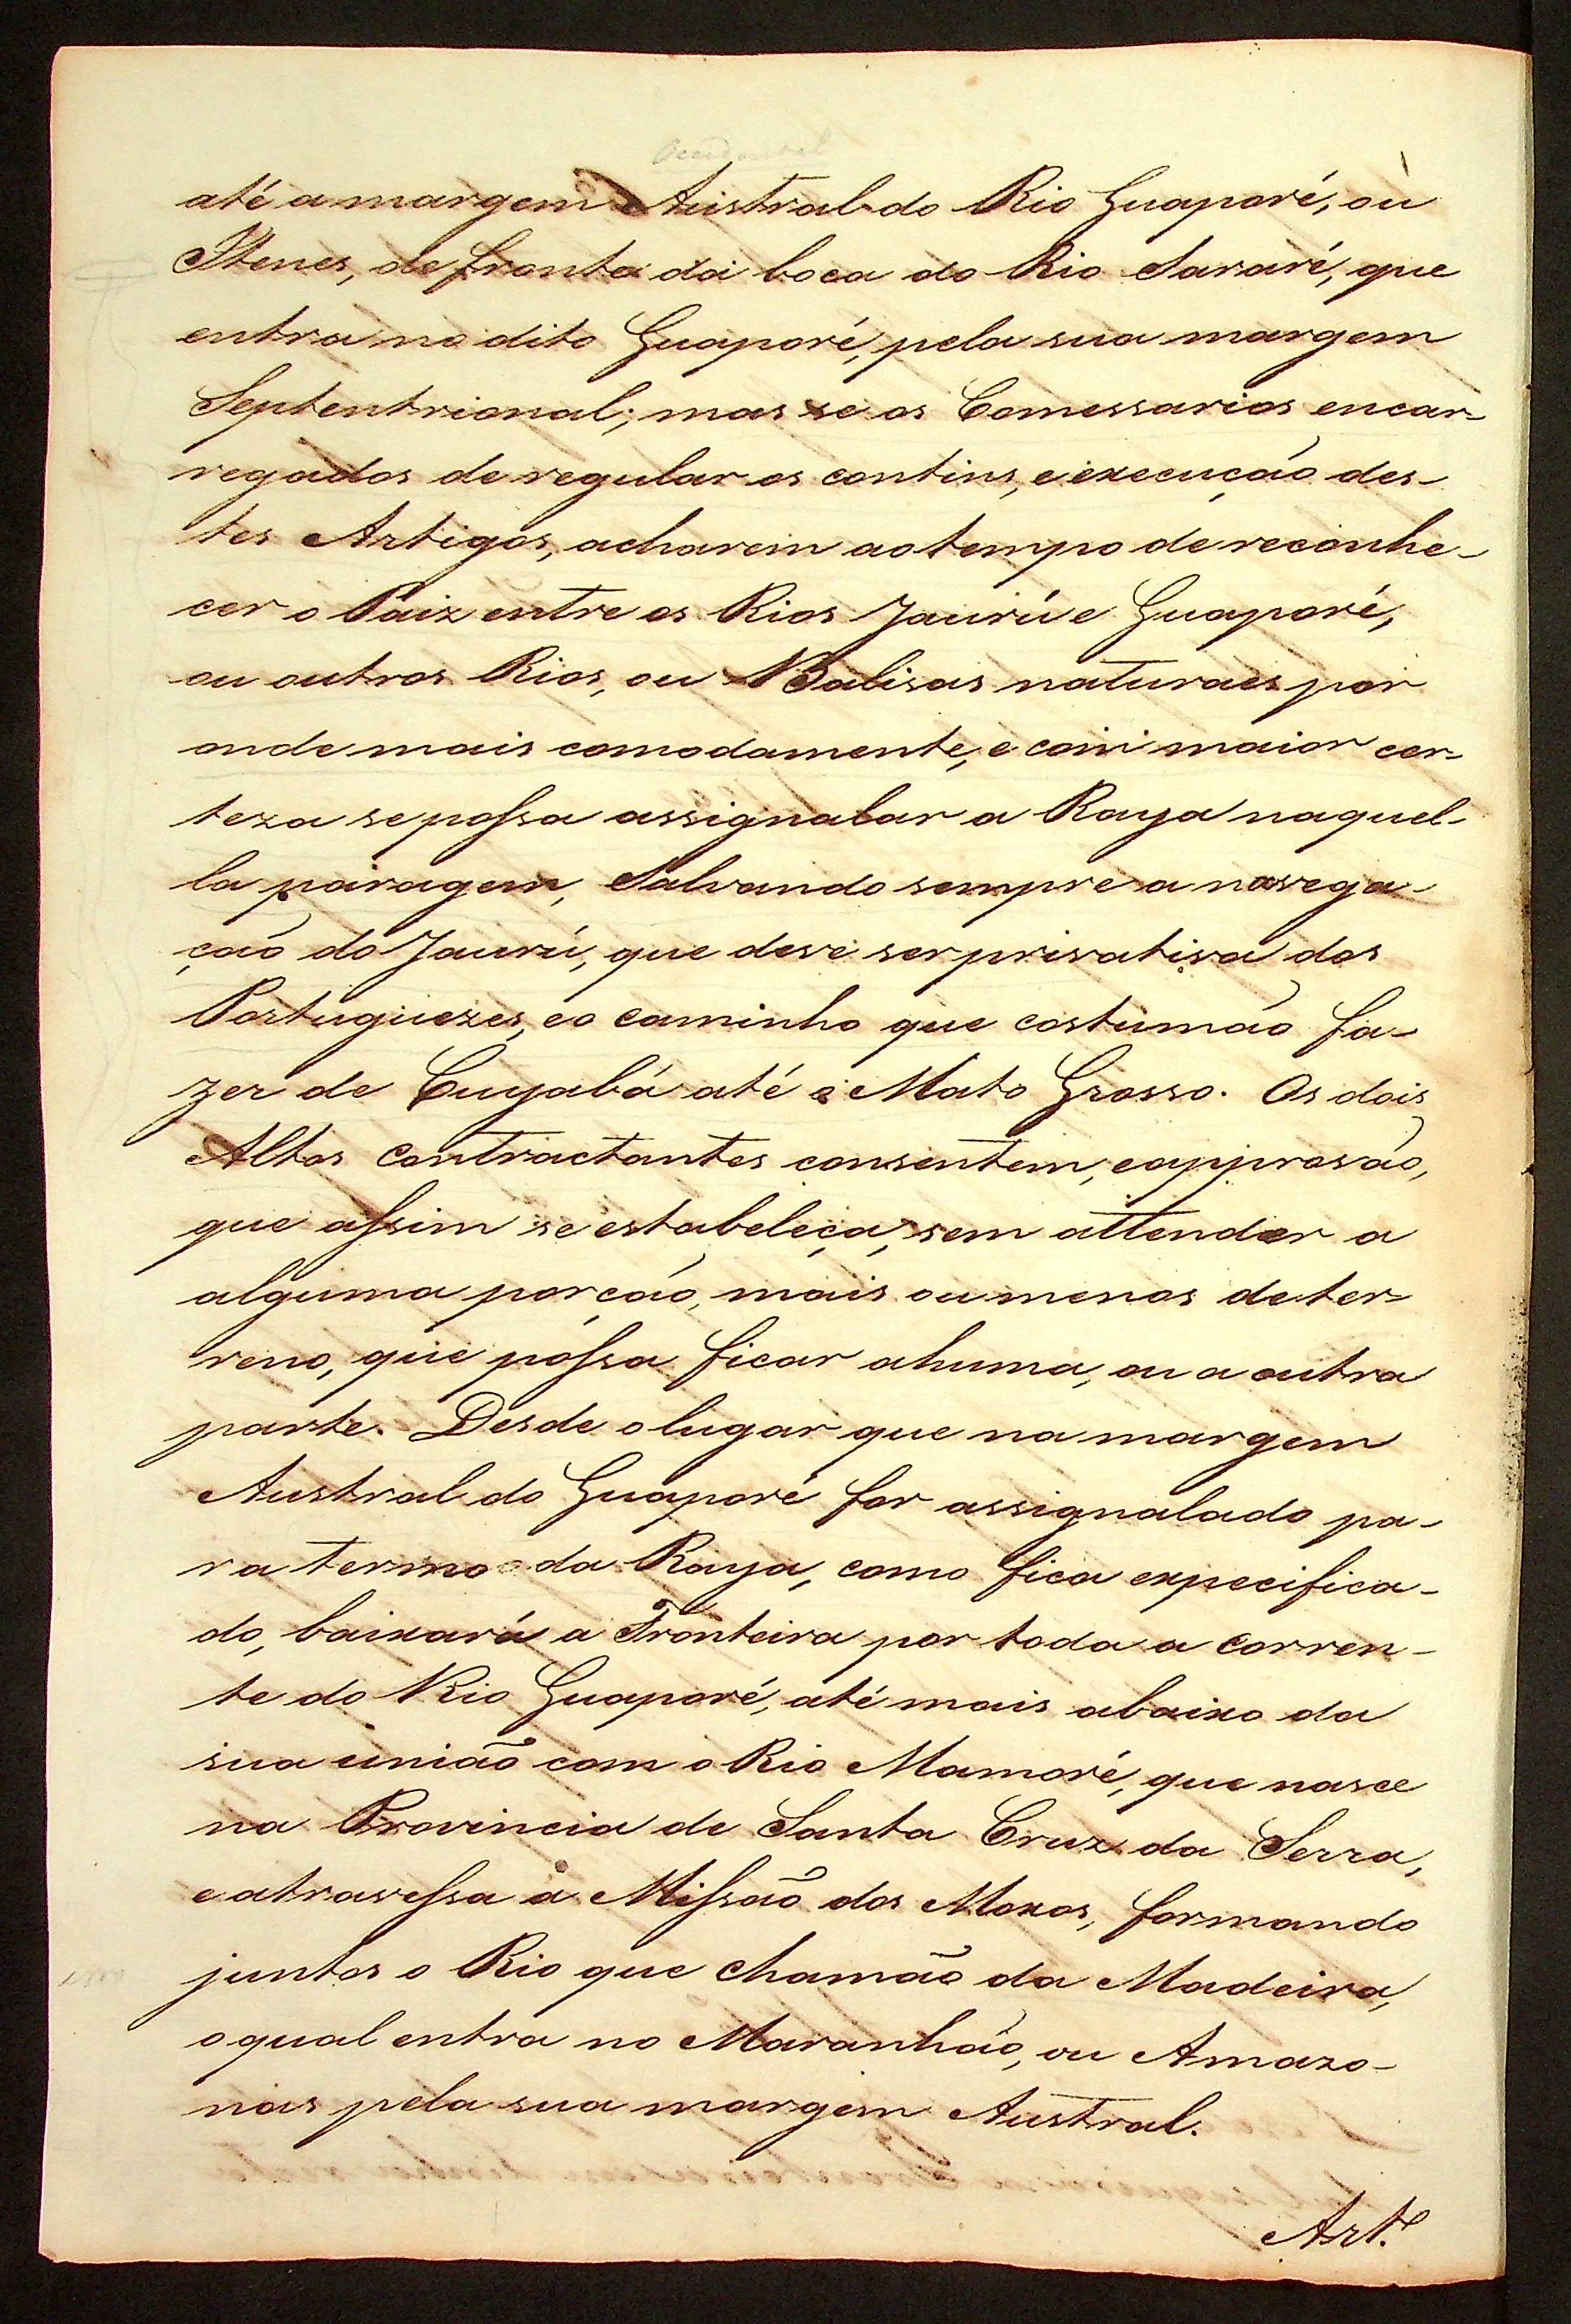 Occidental
até a margem Austral do Rio Guaporé, ou
Itenes, de fronte da boca do Rio Sararé, que
entra no dito Guaporé, pela sua margem
Septentrional; mas se os Comessarios encar-
regados de regular os confins, e execução des-
tes Artigos, acharem ao tempo de reconhe-
cer o Paiz entre os Rios Jaurú e Guaporé,
ou outros Rios, ou Balisas naturaes por
onde mais comodamente, e com maior cer-
teza se poſsa assignalar a Raya naquel-
la paragem, Salvando sempre a navega-
ção do Jaurú, que deve ser privativa dos
Portuguezes, e o caminho que costumão fa-
zer de Cuyabá até o Mato Grosso. Os dois
Altos Contractantes consentem, e approvão,
que aſsim se estabeleça, sem attender a
alguma porção, mais ou menos de ter-
reno, que poſsa ficar a huma, ou a outra
parte. Desde o lugar que na margem
Austral do Guaporé for assignalado pa-
ra termo da Raya, como fica expecifica-
do, baixará a Fronteira por toda a corren-
te do Rio Guaporé, até mais abaixo da
sua união com o Rio Mamoré, que nasce
na Provincia de Santa Cruz da Serra,
e atraveſsa a Miſsão dos Moxos, formando
juntos o Rio que chamão da Madeira,
o qual entra no Maranhão, ou Amazo-
nas pela sua margem Austral.
Art.º